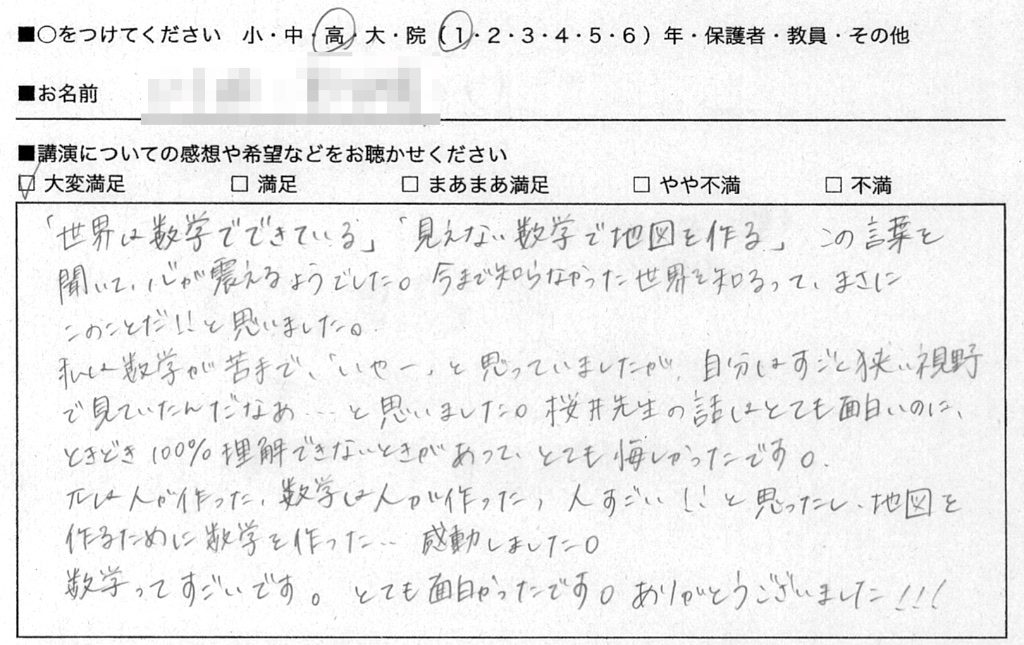 ■○をつけてください 小・中・高・大・院（1・2・3・4・5・6）年・保護者・教員・その他
■お名前
■講演についての感想や希望などをお聴かせください
□ 大変満足 □ 満足 □ まあまあ満足 □ やや不満 □ 不満
「世界は数学でできている」「見えない数学で地図を作る」この言葉を
聞いて、心が震えるようでした。今まで知らなかった世界を知るって、まさに
このことだ!!と思いました。
私は数学が苦手で、「いやー、と思っていましたが、自分はすごく狭い視野
で見ていたんだなぁ…と思いました。桜井先生の話はとても面白いのに、
ときどき100%理解できないときがあって、とても悔しかったです。
πは人が作った、数学は人が作った、人すごい!!と思ったし、地図を
作るために数学を作った… 感動しました。
数学ってすごいです。とても面白かったです。ありがとうございました!!!